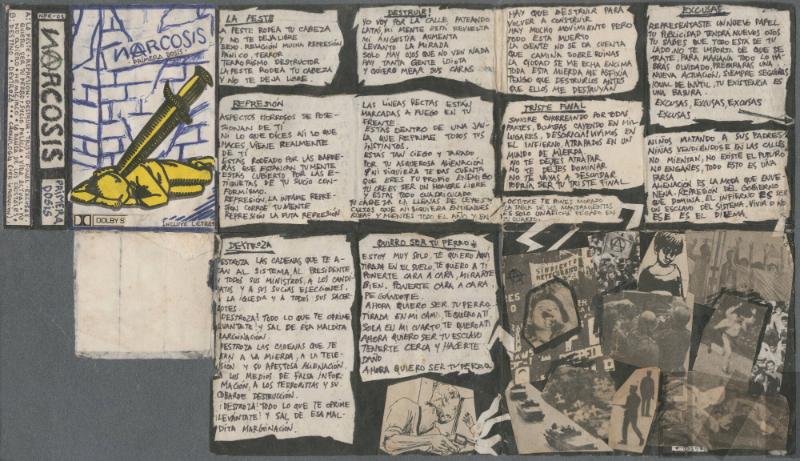 NARCOSIS
PRIMERA DOSIS
NARCOSIS
PRIMERA
DOSIS
DOLBY B
INCLUYE LETRAS
LA PESTE
LA PESTE RODEA TU CABEZA
Y NO TE DEJA LIBRE
SEXO, RELIGIÓN MUCHA REPRESIÓN
PANICO, TERROR
TERRORISMO DESTRUCTOR
LA PESTE RODEA TU CABEZA
Y NO TE DEJA LIBRE.
REPRESIÓN
ASPECTOS HORRIDOS SE POSE-
SIONAN DE TI
NI LO QUE DICES NI LO QUE
HACES, VIENE REALMENTE
DE TI
ESTAS RODEADO POR LAS BARRE-
RAS QUE ESTANCAN TU MENTE
ESTAS CUBIERTO POR LAS E-
TIQUETAS DE TU SUCIO CON-
FORMISMO.
REPRESIÓN, LA INFAME REPRE-
SIÓN CIERRA TU MENTE
REPRESIÓN LA PUTA REPRESIÓN
DESTRUIR!
YO VOY POR LA CALLE PATEANDO
LATAS, MI MENTE ESTA REVUELTA
MI ANGUSTIA AUMENTA
LEVANTO LA MIRADA
SOLO HAY OJOS QUE NO VEN NADA
HAY TANTA GENTE IDIOTA
Y QUIERO MEAR SUS CARAS
LAS LINEAS RECTAS ESTÁN
MARCADAS A FUEGO EN TU
FRENTE
ESTAS DENTRO DE UNA JAU-
LA QUE REPRIME TODOS TUS
INSTINTOS.
ESTAS TAN CIEGO Y TARADO
POR TU ASQUEROSA ALIENACIÓN
NI SIQUIERA TE DAS CUENTA
QUE ERES TU PROPIO ENEMIGO
TU CREES SER UN HOMBRE LIBRE
Y ESTAS TODO CUADRICULADO
TU CABEZA LA LLENAS DE LEYES
HAY QUE DESTRUIR PARA
VOLVER A CONSTRUIR
HAY MUCHO MOVIMIENTO PERO
TODO ESTA MUERTO
LA GENTE NO SE DA CUENTA
QUE CAMINA SOBRE RUINAS
LA CIUDAD SE ME ECHA ENCIMA
TODA ESTA MIERDA ME ASFIXIA
TENGO QUE DESTRUIRLOS ANTES
QUE ELLOS ME DESTRUYAN
TRISTE FINAL
SANGRE CHORREANDO POR TODAS
PARTES, BOMBAS CAYENDO EN MIL
LUGARES, DESGRACIAS VIVIMOS EN
EL INFIERNO ATRAPADOS EN UN
MUNDO DE MIERDA
NO TE DEJES ATRAPAR
NO TE DEJES DOMINAR
NO TE VAYAS A DESCUIDAR
PODRIA SER TU TRISTE FINAL.
EXCUSAS
REPRESENTASTE UN NUEVO PAPEL
TU PUBLICIDAD TENDRA NUEVOS OJOS
TU SABES QUE TODO ESTA DE TU
LADO NO TE IMPORTA DE QUE SE
TRATE, PARA MAÑANA TODO LO HA-
BRAS OLVIDADO, PREPARARAS UNA
NUEVA ACTUACIÓN, SIEMPRE SEGUIRAS
IGUAL DE INUTIL, TU EXISTENCIA ES
UNA BASURA.
EXCUSAS, EXCUSAS, EXCUSAS
EXCUSAS
NIÑOS MATANDO A SUS PADRES
NIÑAS VENDIENDOSE EN LAS CALLES
NO MIENTAN, NO EXISTE EL FUTURO
NO ENGAÑES, TODO ESTO ES UNA
FARSA.
ALIENACIÓN ES LA MODA QUE ENVE-
NENA, REPRESIÓN DEL GOBIERNO
QUE DOMINA, EL INFIERNO ES SER
UN ESCLAVO DEL SISTEMA, VIVIR O NO
ESE ES EL DILEMA.
DESTROZA
DESTROZA LAS CADENAS QUE TE A-
TAN AL SISTEMA, AL PRESIDENTE
Y TODOS SUS MINISTROS, A LOS CANDI-
DATOS Y A SUS SUCIAS ELECCIONES.
A LA IGLESIA Y A TODOS SUS SACER-
DOTES.
¡DESTROZA! TODO LO QUE TE OPRIME
¡LEVANTATE! Y SAL DE ESA MALDITA
MARGINACIÓN.
DESTROZA LAS CADENAS QUE TE
ATAN A LA MIERDA, A LA TELE-
VISIÓN Y SU APESTOSA ALIENACIÓN.
A LOS MEDIOS DE FALSA INFOR-
MACIÓN, A LOS TERRORISTAS Y SU
COBARDE DESTRUCCIÓN.
¡DESTROZA! TODO LO QUE TE OPRIME
¡LEVANTATE! Y SAL DE ESA MAL-
DITA MARGINACIÓN.
QUIERO SER TU PERRO
ESTOY MUY SOLO, TE QUIERO AQUI
TIRADA EN EL SUELO, TE QUIERO A TI
PONERTE CARA A CARA, MIRARTE
BIEN, PONERTE CARA A CARA,
PEGANDOTE.
AHORA QUIERO SER TU PERRO
TIRADA EN MI CAMA, TE QUIERO A TI
SOLA EN MI CUARTO TE QUIERO A TI
AHORA QUIERO SER TU ESCLAVO
TENERTE CERCA Y HACERTE
DAÑO
AHORA QUIERO SER TU PERRO
SINDICATO